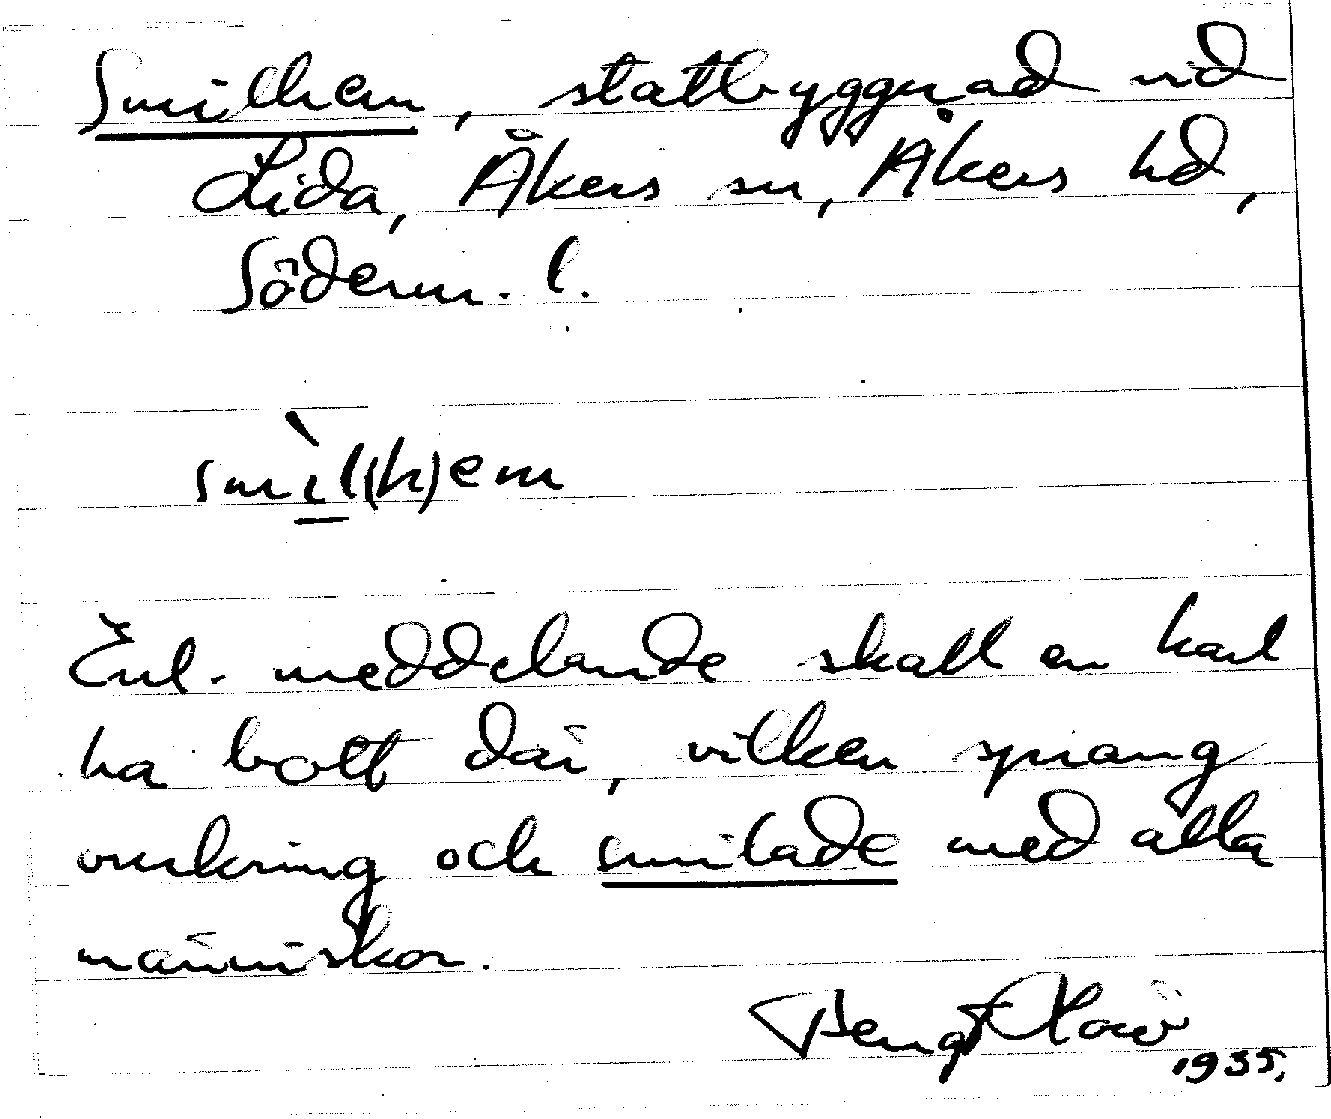 Smilhem, statbyggnad vid
Lida, Åkers sn, Åkers hd,
Söderm. l.
smìl(h)em
Enl. meddelande skall en karl
ha bott där, vilken sprang
omkring och smilade med alla
människor.
Bengt
1935.